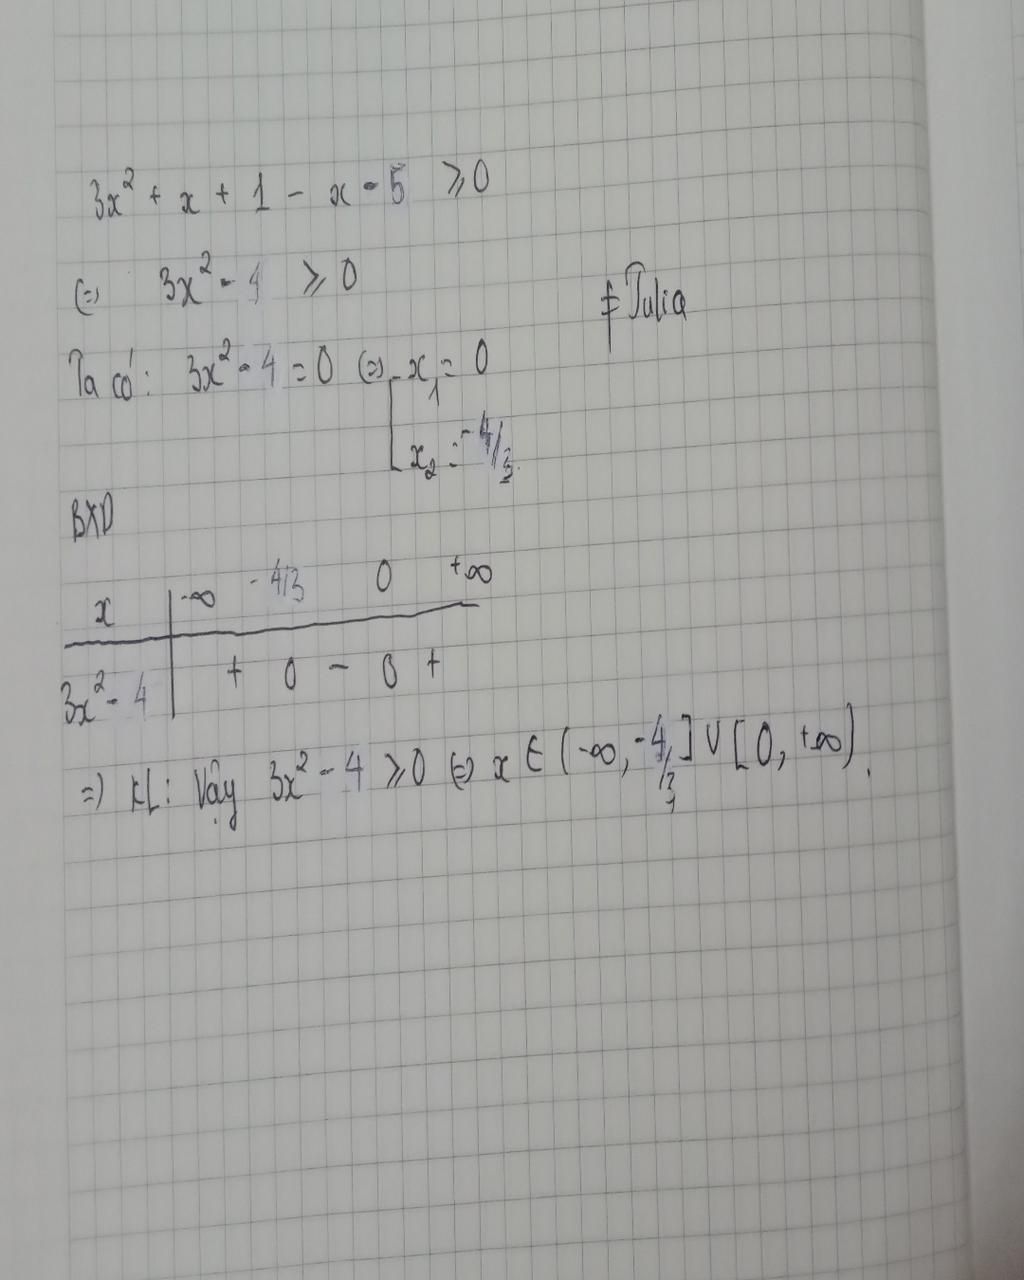 3x² + x + 1 - x - 5 ≥ 0
(=) 3x² - 4 ≥ 0
Ta có: 3x² - 4 = 0 (=) [ x₁ = 0
x₂ = -4/3
BXD
x | -∞ -4/3 0 +∞
3x² - 4 | + 0 - 0 +
=) KL: Vậy 3x² - 4 ≥ 0 (=) x ∈ (-∞, -4/3] ∪ [0, +∞).
Julia